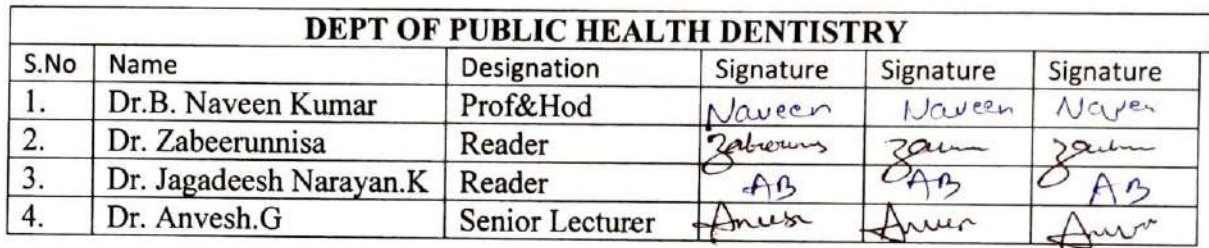 DEPT OF PUBLIC HEALTH DENTISTRY
S.No Name Designation Signature Signature Signature
1. Dr.B. Naveen Kumar Prof&Hod Naveen Naveen Naveen
2. Dr. Zabeerunnisa Reader
3. Dr. Jagadeesh Narayan.K Reader AB AB AB
4. Dr. Anvesh.G Senior Lecturer